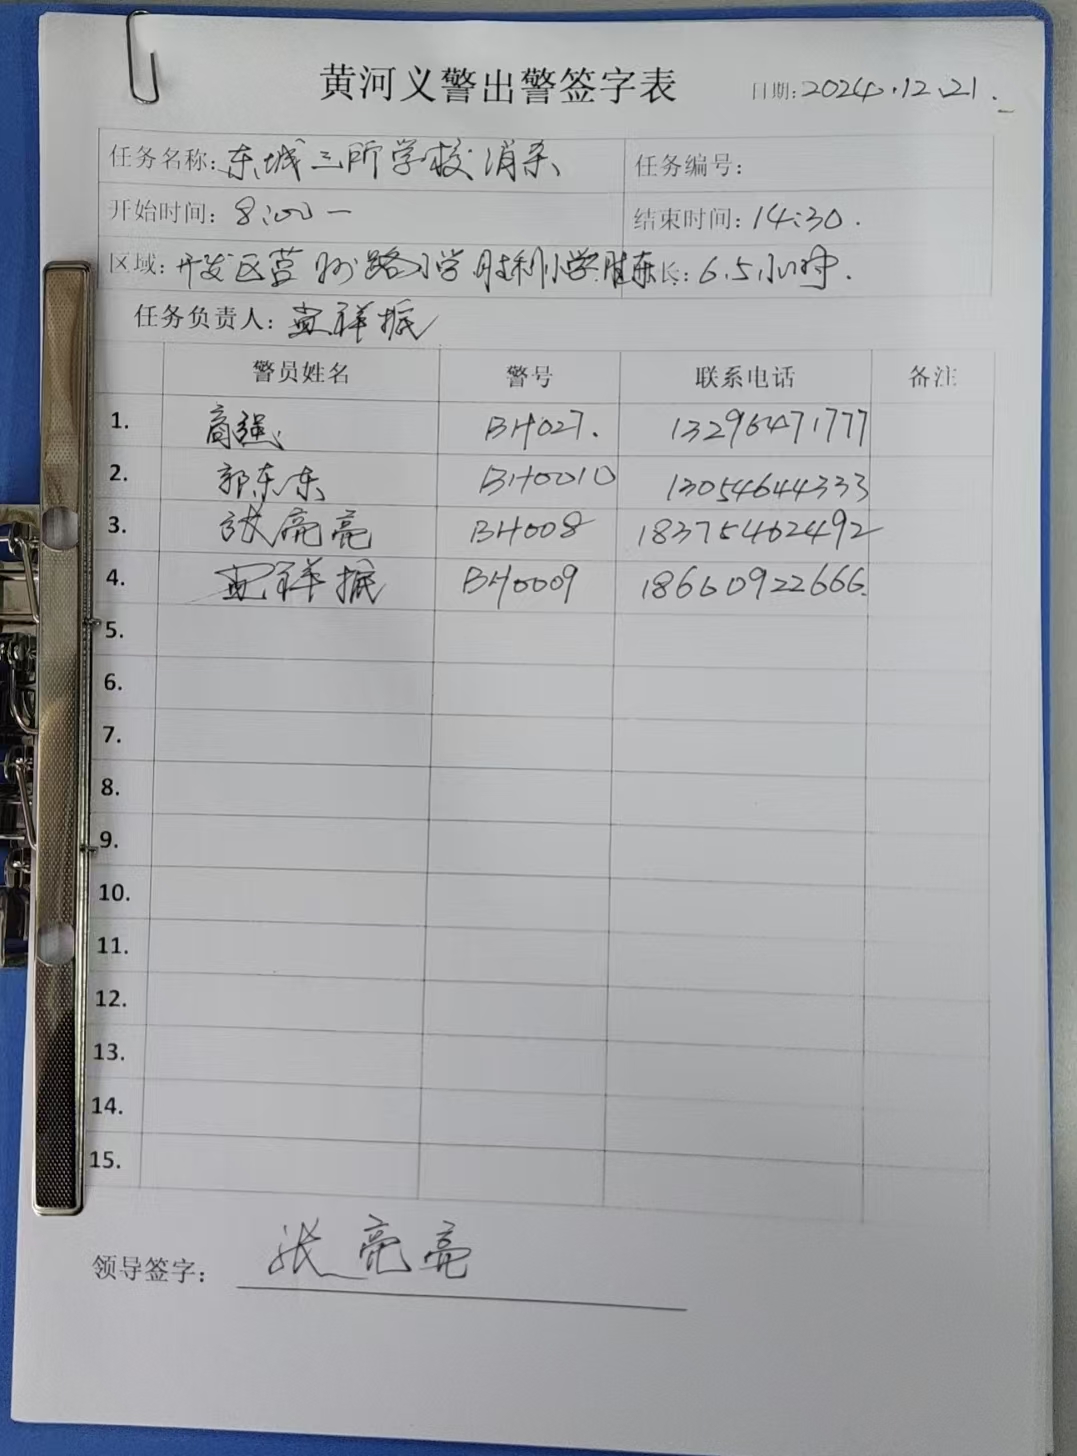 黄河义警出警签字表 日期:2024.12.21.
任务名称:东城三所学校消杀 任务编号:
开始时间:8:00一 结束时间:14:30.
区域:开发区营州路小学 胜利小学 胜东 长:6.5小时.
任务负责人: 祥振
警员姓名 警号 联系电话 备注
1. 高强 BH027. 13296471777
2. 郭东东 BH0010 13054644333
3. 张亮亮 BH008 18375462492
4. 祥振 BH0009 18660922666.
5.
6.
7.
8.
9.
10.
11.
12.
13.
14.
15.
领导签字: 张亮亮